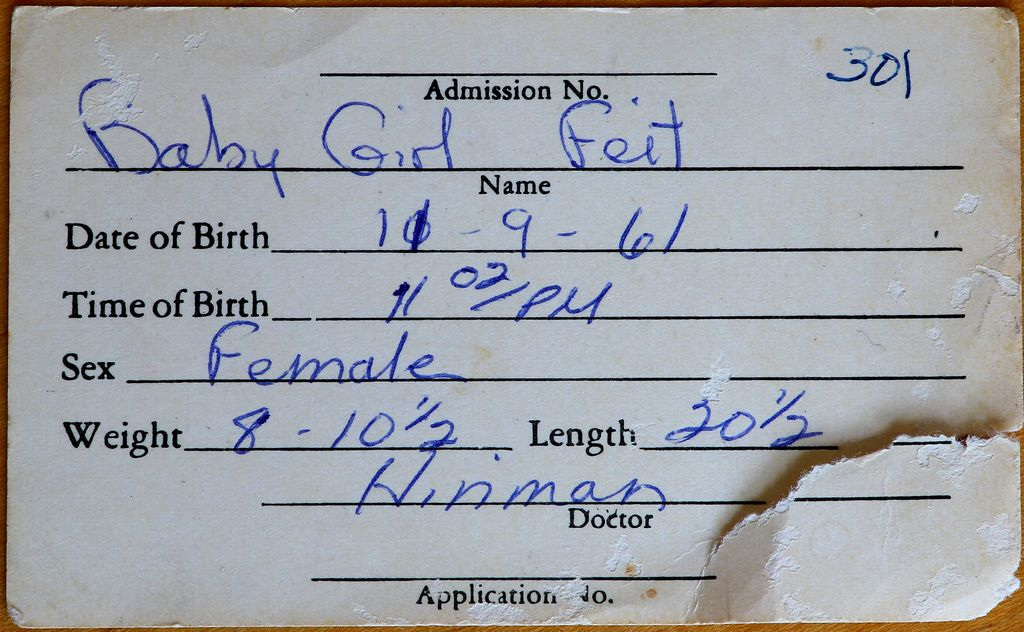 301
Admission No.
Baby Girl Feit
Name
Date of Birth 11 - 9 - 61
Time of Birth 11 02/PM
Sex Female
Weight 8 - 10 1/2 Length 20 1/2
Hinman
Doctor
Application No.